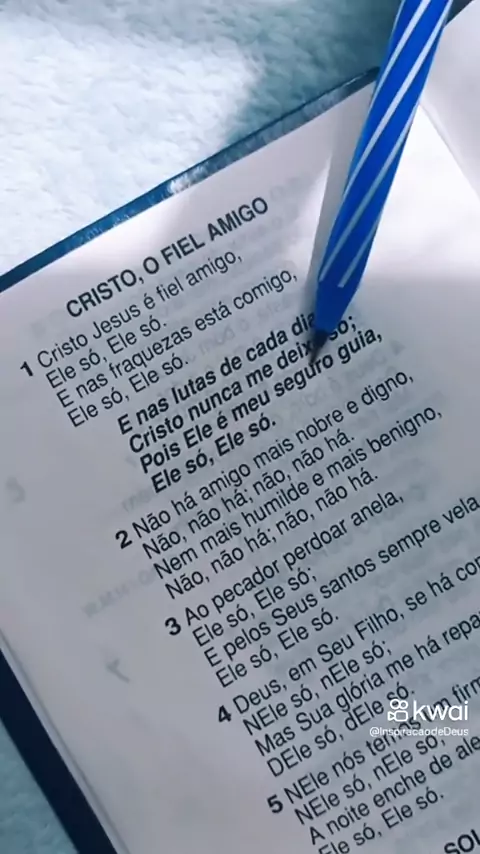 CRISTO, O FIEL AMIGO
1 Cristo Jesus é fiel amigo,
Ele só, Ele só.
E nas fraquezas está comigo,
Ele só, Ele só.
E nas lutas de cada dia
Cristo nunca me deixa só;
Pois Ele é meu seguro guia,
Ele só, Ele só.
2 Não há amigo mais nobre e digno,
Não, não há; não, não há.
Nem mais humilde e mais benigno,
Não, não há; não, não há.
3 Ao pecador perdoar anela,
Ele só, Ele só;
E pelos Seus santos sempre vela
Ele só, Ele só.
4 Deus, em Seu Filho, se há
NEle só, nEle só;
Mas Sua glória me há
DEle só, dEle só.
5 NEle nós temos um
NEle só, nEle só;
A noite enche de
Ele só, Ele só.
kwai
@InspiracaodeDeus